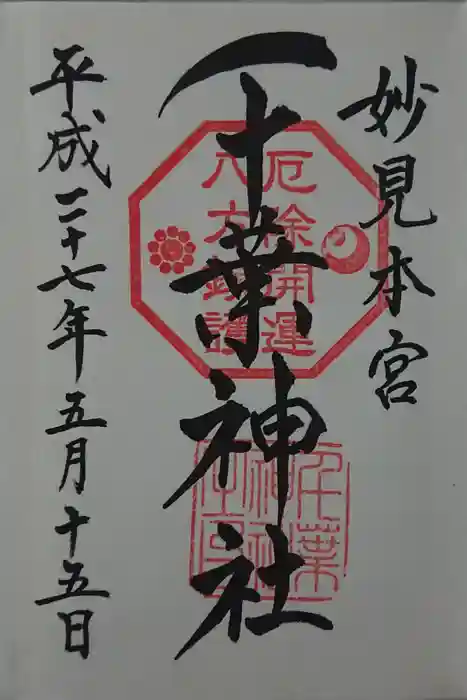 妙見本宮
千葉神社
平成二十七年五月十五日
厄除開運
八方鎮護
千葉
神社